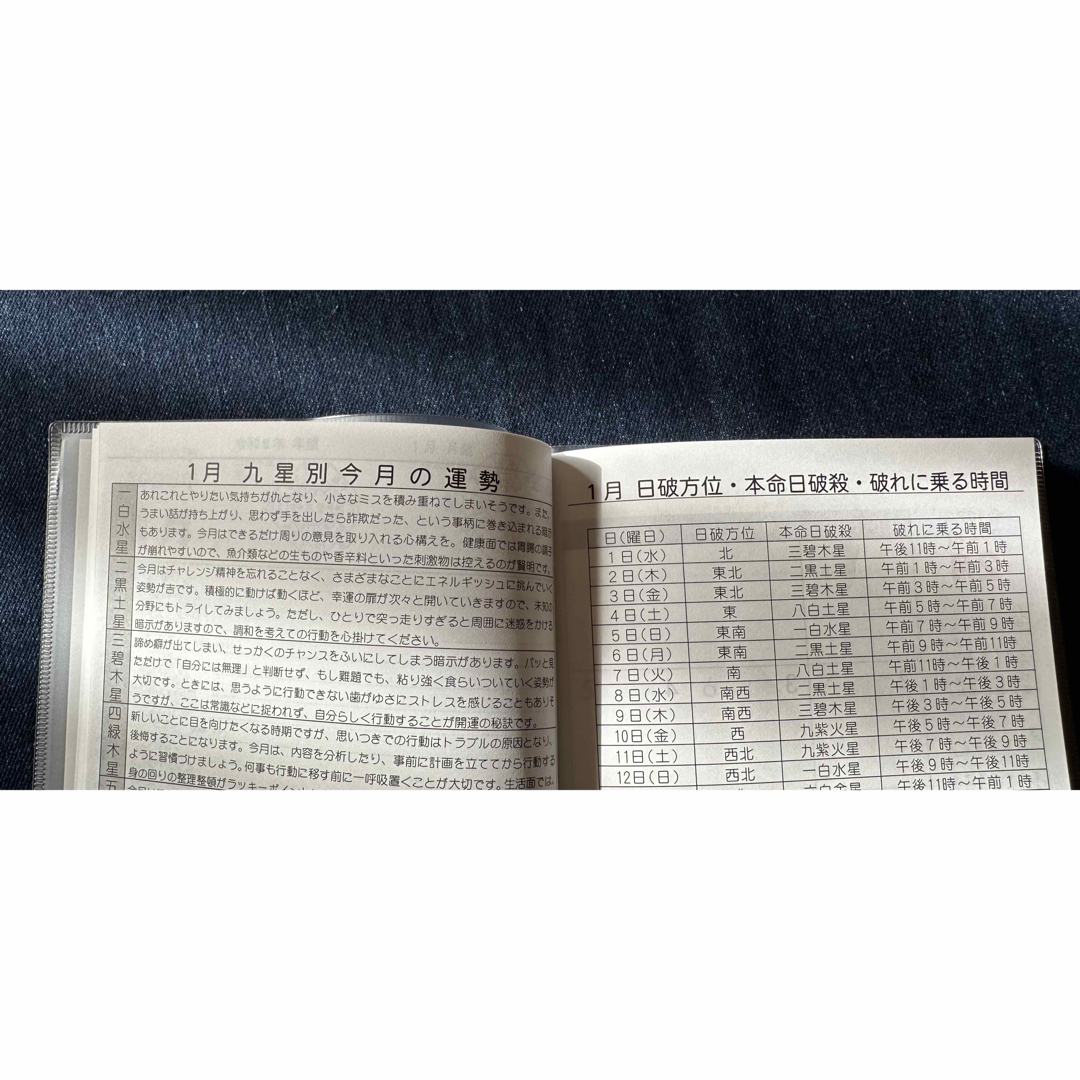 1月 九星別今月の運勢
一白水星
あれこれとやりたい気持ちが仇となり、小さなミスを積み重ねてしまいそうです。また、
うまい話が持ち上がり、思わず手を出したら詐欺だった、という事柄に巻き込まれる暗示
もあります。今月はできるだけ周りの意見を取り入れる心構えを。健康面では胃腸の調子
が崩れやすいので、魚介類などの生ものや香辛料といった刺激物は控えるのが賢明です。
二黒土星
今月はチャレンジ精神を忘れることなく、さまざまなことにエネルギッシュに挑んでいく
姿勢が吉です。積極的に動けば動くほど、幸運の扉が次々と開いていきますので、未知の
分野にもトライしてみましょう。ただし、ひとりで突っ走りすぎると周囲に迷惑をかける
暗示がありますので、調和を考えての行動を心掛けてください。
三碧木星
諦め癖が出てしまい、せっかくのチャンスをふいにしてしまう暗示があります。パッと見
ただけで「自分には無理」と判断せず、もし難題でも、粘り強く食らいついていく姿勢が
大切です。ときには、思うように行動できない歯がゆさにストレスを感じることもありそ
うですが、ここは常識などに捉われず、自分らしく行動することが開運の秘訣です。
四緑木星
新しいことに目を向けたくなる時期ですが、思いつきでの行動はトラブルの原因となり、
後悔することになります。今月は、内容を分析したり、事前に計画を立ててから行動する
ように習慣づけましょう。何事も行動に移す前に一呼吸置くことが大切です。生活面では、
身の回りの整理整頓がラッキーポイント
五
1月 日破方位・本命日破殺・破れに乗る時間
日(曜日) 日破方位 本命日破殺 破れに乗る時間
1日(水) 北 三碧木星 午後11時～午前1時
2日(木) 東北 二黒土星 午前1時～午前3時
3日(金) 東北 三碧木星 午前3時～午前5時
4日(土) 東 八白土星 午前5時～午前7時
5日(日) 東南 一白水星 午前7時～午前9時
6日(月) 東南 二黒土星 午前9時～午前11時
7日(火) 南 八白土星 午前11時～午後1時
8日(水) 南西 二黒土星 午後1時～午後3時
9日(木) 南西 三碧木星 午後3時～午後5時
10日(金) 西 九紫火星 午後5時～午後7時
11日(土) 西北 九紫火星 午後7時～午後9時
12日(日) 西北 一白水星 午後9時～午後11時
六白金星 午後11時～午前1時